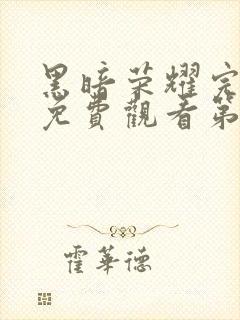 黑暗荣耀完
免費觀看第
霍華德